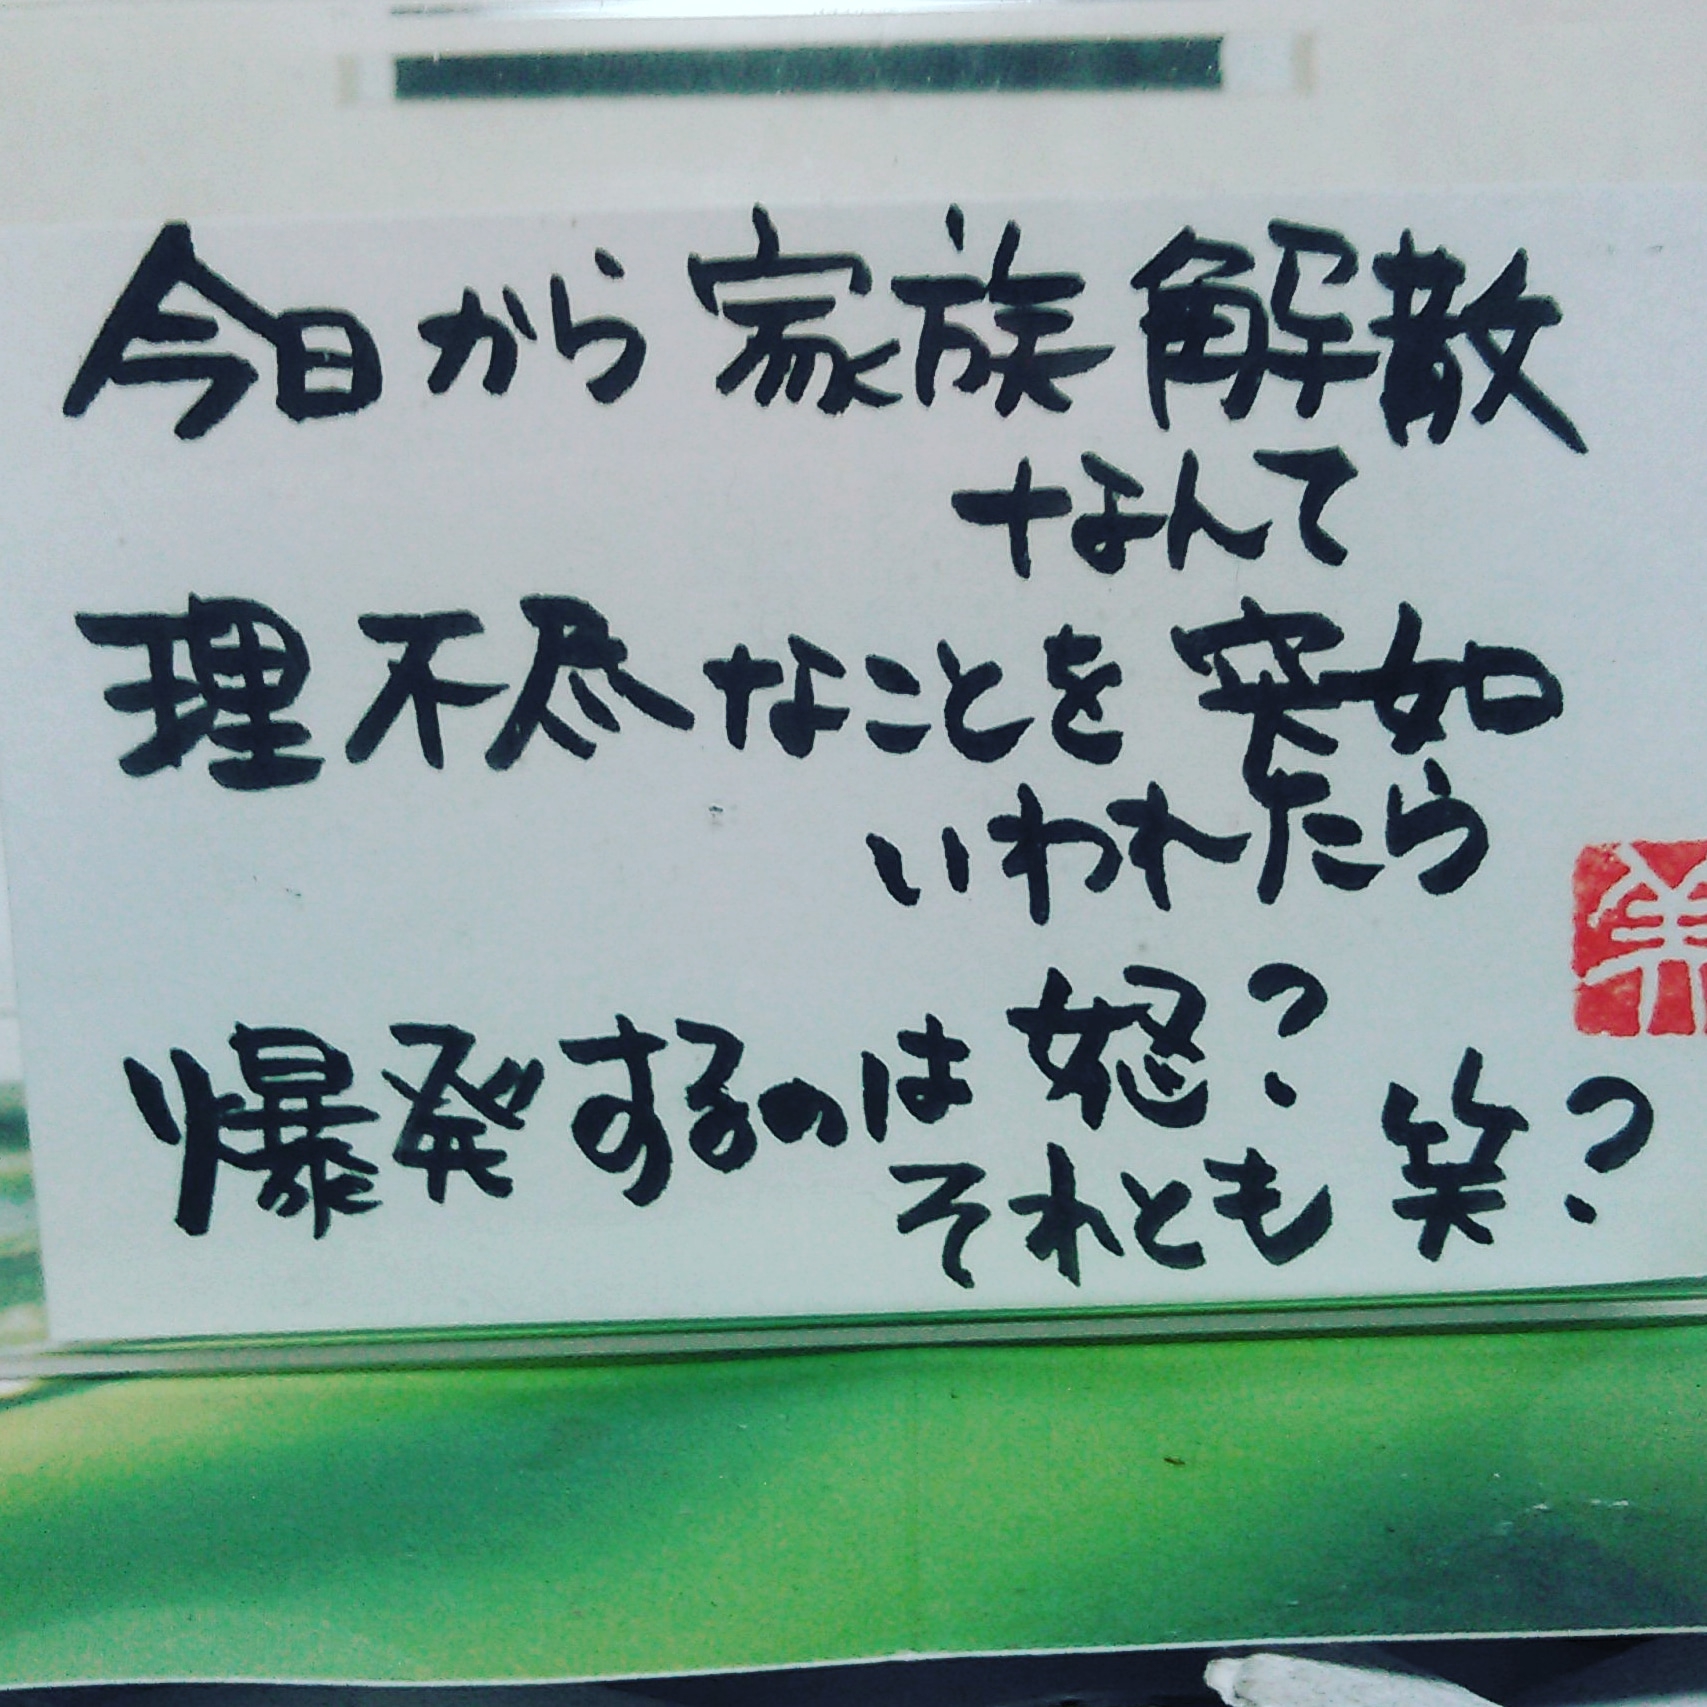 今日から家族解散
なんて
理不尽なことを突如
いわれたら
爆発するのは怒?
それとも笑?